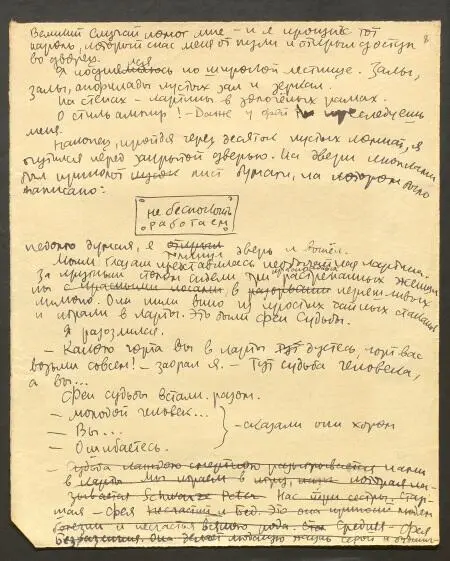 Великий Случай помог мне – и я произнёс тот
пароль, который спас меня от пули и открыл доступ
во дворец.
Я поднимался по широкой лестнице. Залы,
залы, анфилады пустых зал и зеркал.
На стенах – картины в золочёных рамах.
О стиль ампир! – Даже у фей ты преследуешь
меня.
Наконец, пройдя через десяток пустых комнат, я
очутился перед закрытой дверью. На двери кнопками
был приколот лист бумаги, на котором было
написано:
не беспокоить
работаем
недолго думая, я толкнул дверь и вошёл.
Моим глазам представилась необычайная картина.
За круглым столом сидели три растрёпанных женщины
с красными носами в нелепейших
кимоно. Они пили вино из простых чайных стаканов
и играли в карты. Это были Феи Судьбы.
Я разозлился.
– Какого чорта вы в карты дуетесь, чорт вас
возьми совсем! – заорал я. – Тут судьба человека,
а вы...
Феи судьбы встали разом.
– Молодой человек...
– Вы...
– Ошибаетесь.
– сказали они хором
– Судьба каждого смертного разыгрывается нами
в карты. Мы играем в игру, которая на-
зывается Schwarze Peter. Нас три сестры. Стар-
шая – Фея Несчастий и Бед. Это она приносит людям
болезни и несчастья всякого рода. Средняя – Фея
Безразличия. Она делает людскую жизнь серой и